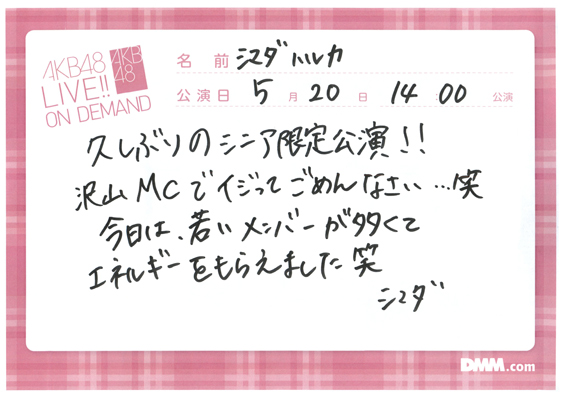 AKB48
LIVE!!
ON DEMAND
AKB
48
名 前 シマダハルカ
公演日 5 月 20 日 14:00 公演
久しぶりのシニア限定公演!!
沢山MCでイジってごめんなさい…笑
今日は、若いメンバーが多くて
エネルギーをもらえました笑
シマダ
DMM.com